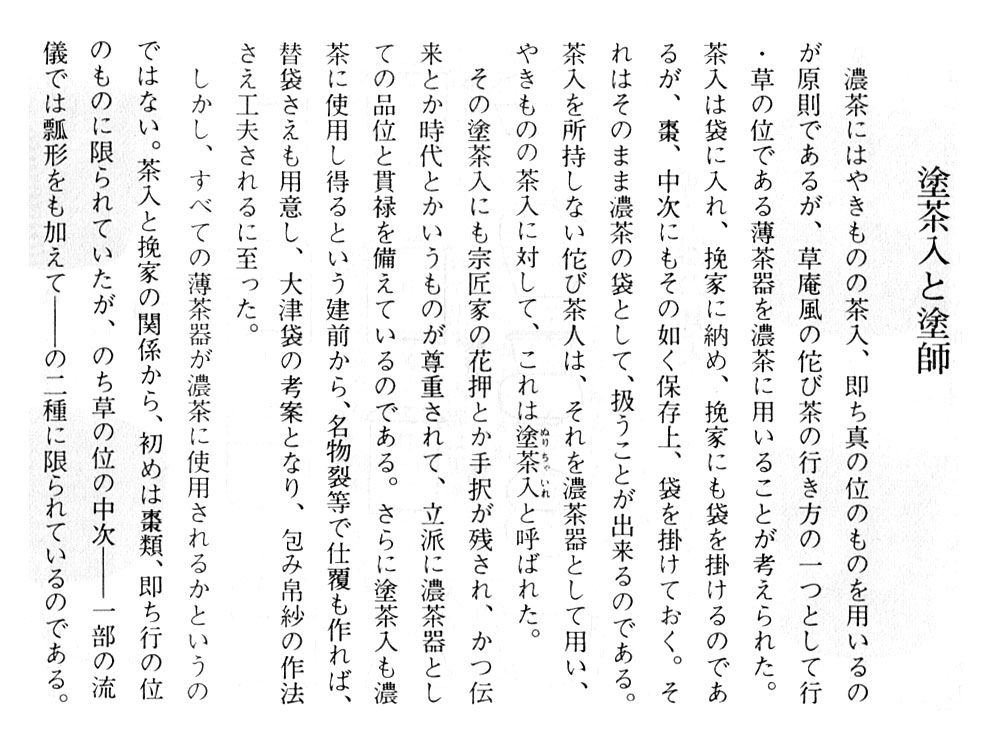 塗茶入と塗師
濃茶にはやきものの茶入、即ち真の位のものを用いるの
が原則であるが、草庵風の侘び茶の行き方の一つとして行
・草の位である薄茶器を濃茶に用いることが考えられた。
茶入は袋に入れ、挽家に納め、挽家にも袋を掛けるのであ
るが、棗、中次にもその如く保存上、袋を掛けておく。そ
れはそのまま濃茶の袋として、扱うことが出来るのである。
茶入を所持しない侘び茶人は、それを濃茶器として用い、
やきものの茶入に対して、これは塗茶入と呼ばれた。
その塗茶入にも宗匠家の花押とか手択が残され、かつ伝
来とか時代とかいうものが尊重されて、立派に濃茶器とし
ての品位と貫禄を備えているのである。さらに塗茶入も濃
茶に使用し得るという建前から、名物裂等で仕覆も作れば、
替袋さえも用意し、大津袋の考案となり、包み帛紗の作法
さえ工夫されるに至った。
しかし、すべての薄茶器が濃茶に使用されるかというの
ではない。茶入と挽家の関係から、初めは棗類、即ち行の位
のものに限られていたが、のち草の位の中次――一部の流
儀では瓢形をも加えて――の二種に限られているのである。